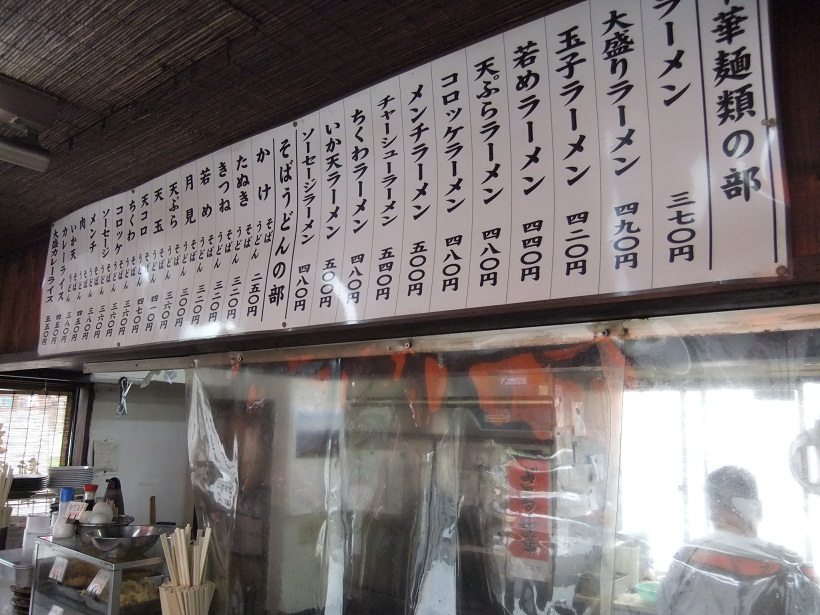 華麺類の部
ラーメン 三七〇円
大盛りラーメン 四九〇円
玉子ラーメン 四二〇円
若めラーメン 四四〇円
天ぷらラーメン 四八〇円
コロッケラーメン 四八〇円
メンチラーメン 五〇〇円
チャーシューラーメン 五四〇円
ちくわラーメン 四八〇円
いか天ラーメン 五〇〇円
ソーセージラーメン 四八〇円
そばうどんの部
かけ そば うどん 二五〇円
たぬき そば うどん 三一〇円
きつね そば うどん 三二〇円
若め そば うどん 三二〇円
月見 そば うどん 三〇〇円
天ぷら そば うどん 三六〇円
天玉 そば うどん 四一〇円
天コロ そば うどん 四七〇円
ちくわ そば うどん 三六〇円
コロッケ そば うどん 三六〇円
ソーセージ そば うどん 三六〇円
メンチ そば うどん 三八〇円
肉 そば うどん 四五〇円
いか天 そば うどん 三八〇円
カレーライス 四五〇円
大盛カレーライス 五五〇円